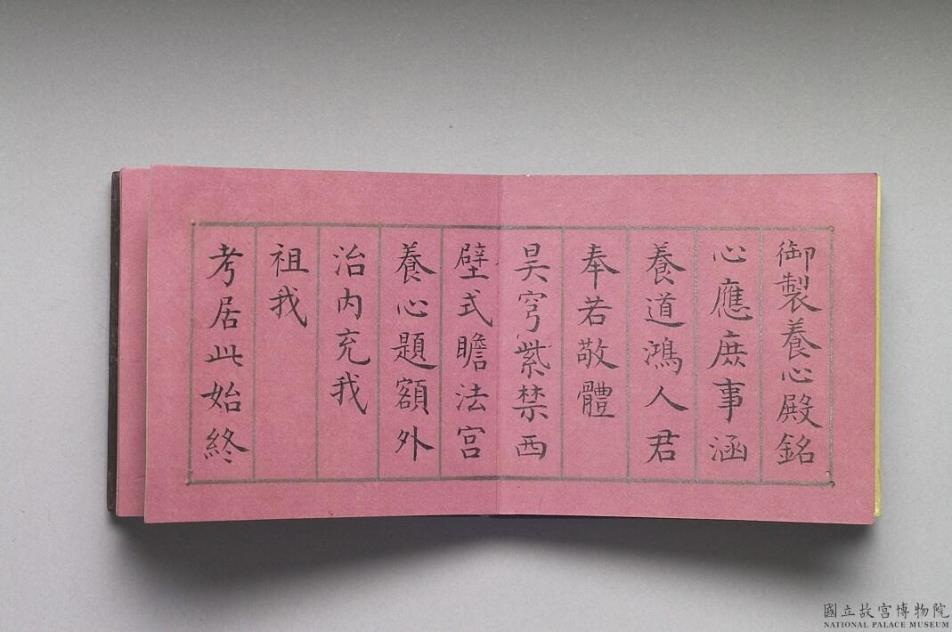 御製養心殿銘
心應庶事涵
養道鴻人君
奉若敬體
昊穹紫禁西
壁式瞻法宫
養心題額外
治内充我
祖我
考居此始終
國立故宮博物院
NATIONAL PALACE MUSEUM